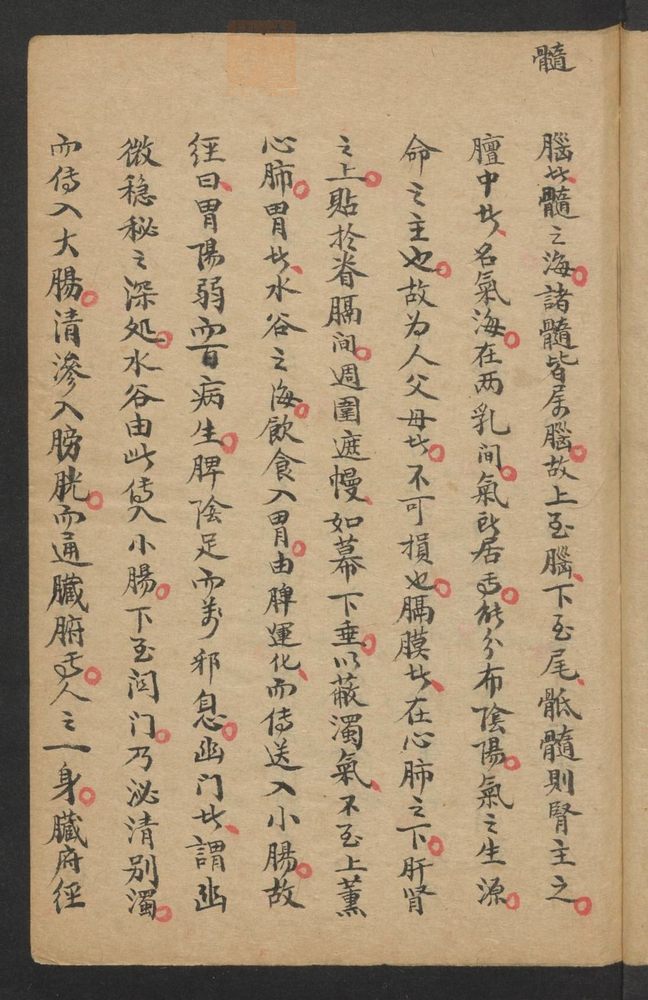 髓
腦者、髓之海。諸髓皆属腦。故上至腦、下至尾骶、髓則腎主之。
膻中者、名氣海。在两乳间。氣所居焉。能分布陰陽。氣之生源。
命之主也。故为人父母者。不可損也。膈膜者、在心肺之下。肝腎
之上。貼於脊膈间。週圍遮幔、如幕下垂。以蔽濁氣、不至上薰
心肺。胃者、水谷之海。飲食入胃。由脾運化、而传送入小腸。故
经曰、胃陽弱而百病生。脾陰足而万邪息。幽门者、謂幽
微稳秘之深处。水谷由此传入小腸。下至闳门。乃泌清别濁。
而传入大腸。清滲入膀胱。而通臟腑焉。人之一身。臟府经